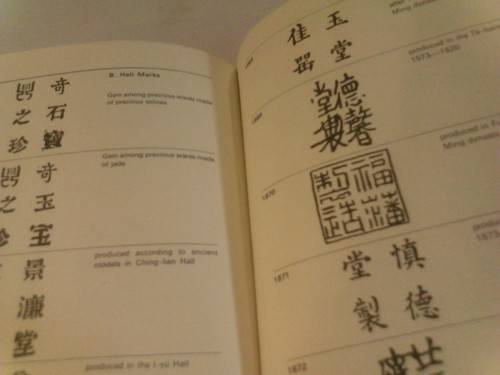 B. Hall Marks
奇石寶
鼎之珍
Gem among precious wares made
of precious stones
奇玉宝
鼎之珍
Gem among precious wares made
of jade
景濂堂
produced according to ancient
models in Ching-lien Hall
produced in the I-yü Hall
玉堂
佳器
after
Ming dynas
produced in the
1573—1620
1869
德馨
堂
1870
福藩
製造
produced in
Ming dynas
1871
慎德
堂製
1573
1872